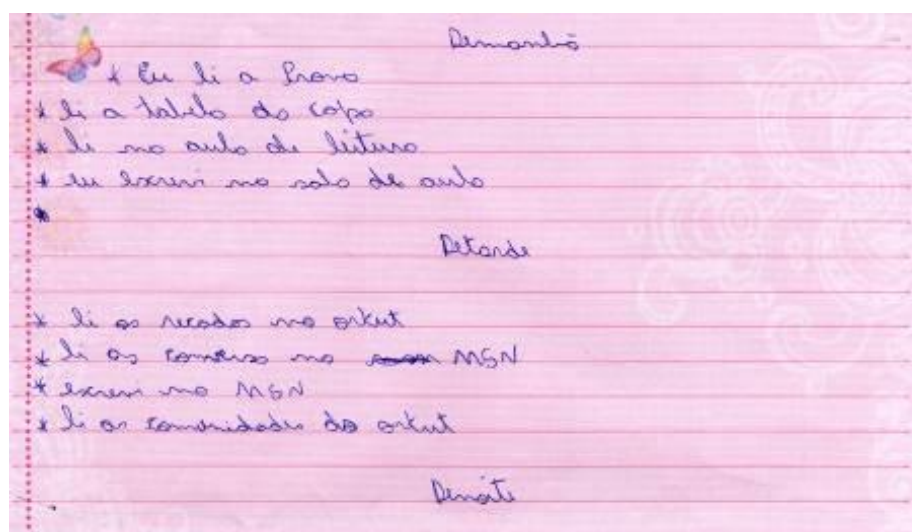 Demanhã
* Eu li a Prova
* li a tabela da copa
* li na aula de leitura
* eu escrevi na sala de aula
*
Detarde
* li os recados no orkut
* li as conversa no MSN
* escrevi no MSN
* li as comunidades do orkut
Denoite